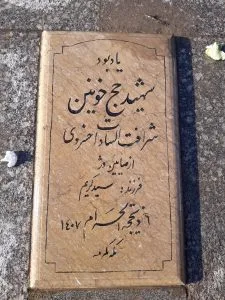 یادبود
شهید حج خونین
شرافت السادات اخروی
از صابین دژ
فرزند: سید کریم
۶ ذیحجة الحرام ۱۴۰۷
مکه مکرمه